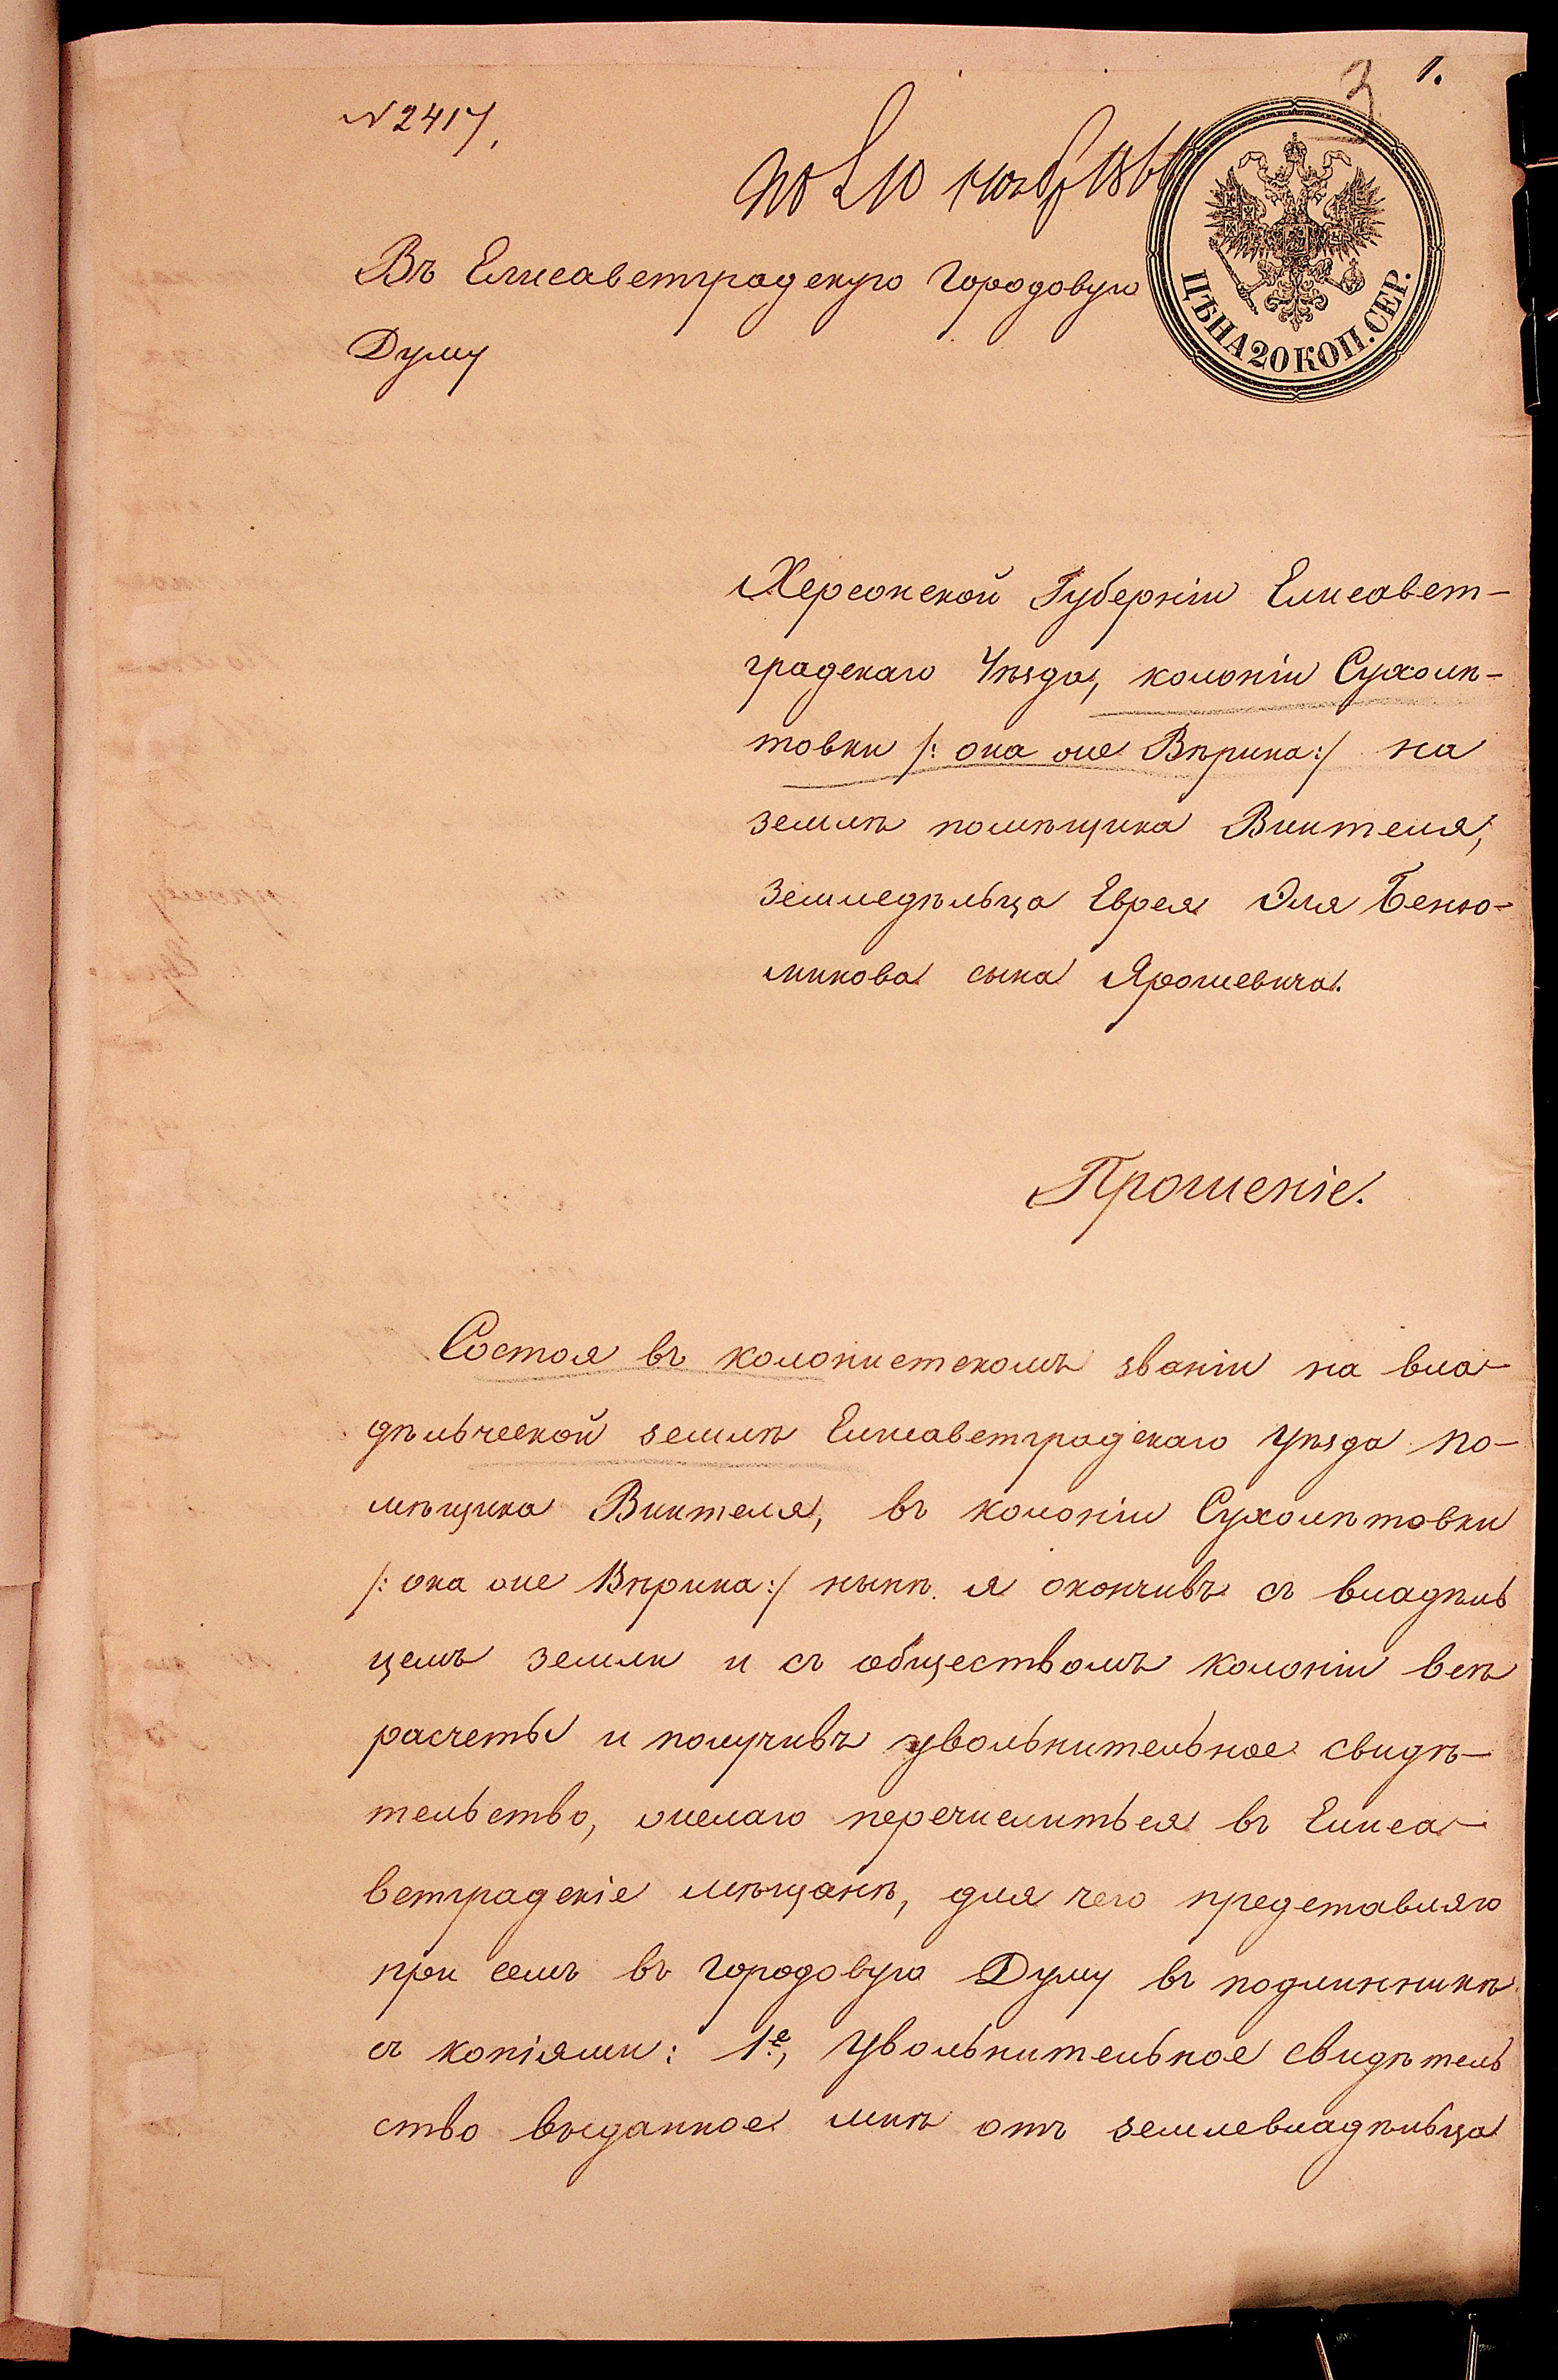 3 1.
№ 2417,
10 ноябр 186
Въ Елисаветградскую Городовую
Думу
ЦѢНА 20 КОП. СЕР.
Херсонской Губерніи Елисавет-
градскаго Уѣзда, колоніи Сухоклѣ-
товки /: она же Вѣрина :/ на
землѣ помѣщика Виктеля,
земледѣльца Еврея Эля Беню-
минова сына Ярошевича.
Прошеніе.
Состоя въ колонистскомъ званіи на вла-
дѣльческой землѣ Елисаветградскаго уѣзда по-
мѣщика Виктеля, въ колоніи Сухоклѣтовки
/: она же Вѣрина :/ нынѣ я окончивъ съ владѣль
цемъ земли и съ обществомъ колоніи всѣ
расчеты и получивъ увольнительное свидѣ-
тельство, желаю перечислиться въ Елиса-
ветградскіе мѣщанѣ, для чего представляю
при семъ въ Городовую Думу въ подлинникѣ
съ копіями: 1е, Увольнительное свидѣтель
ство выданное мнѣ отъ землевладѣльца